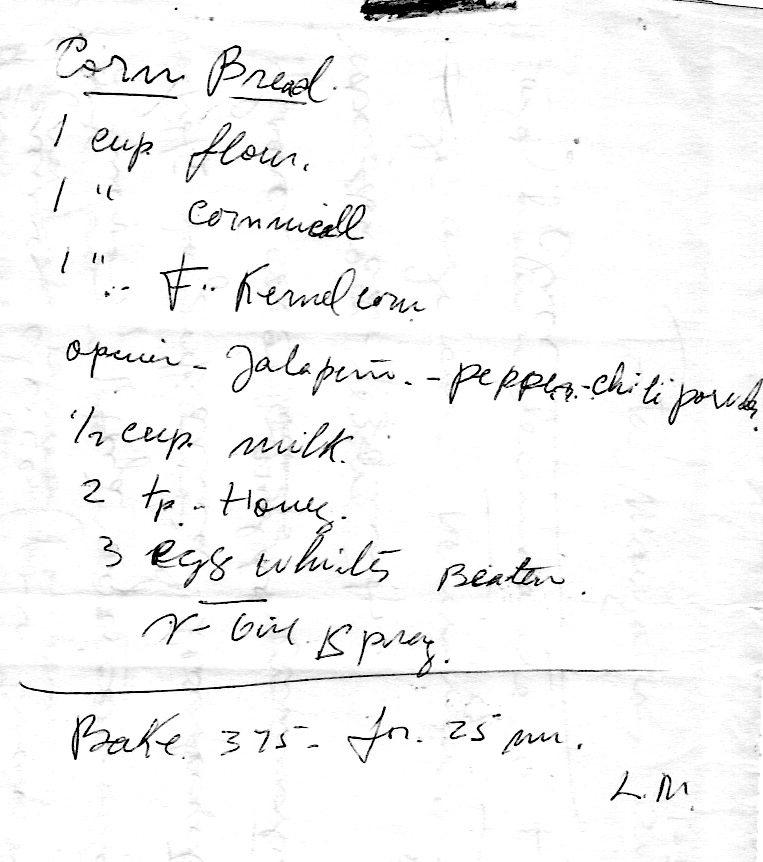 Corn Bread.
1 cup flour.
1 " cornmeal
1 " Kernel corn
Jalapeno - pepper - chili powder.
1/2 cup milk.
2 tp. - Honey.
3 egg whites Beaten.
Spray.
Bake 375 - for. 25 mn.
L.M.